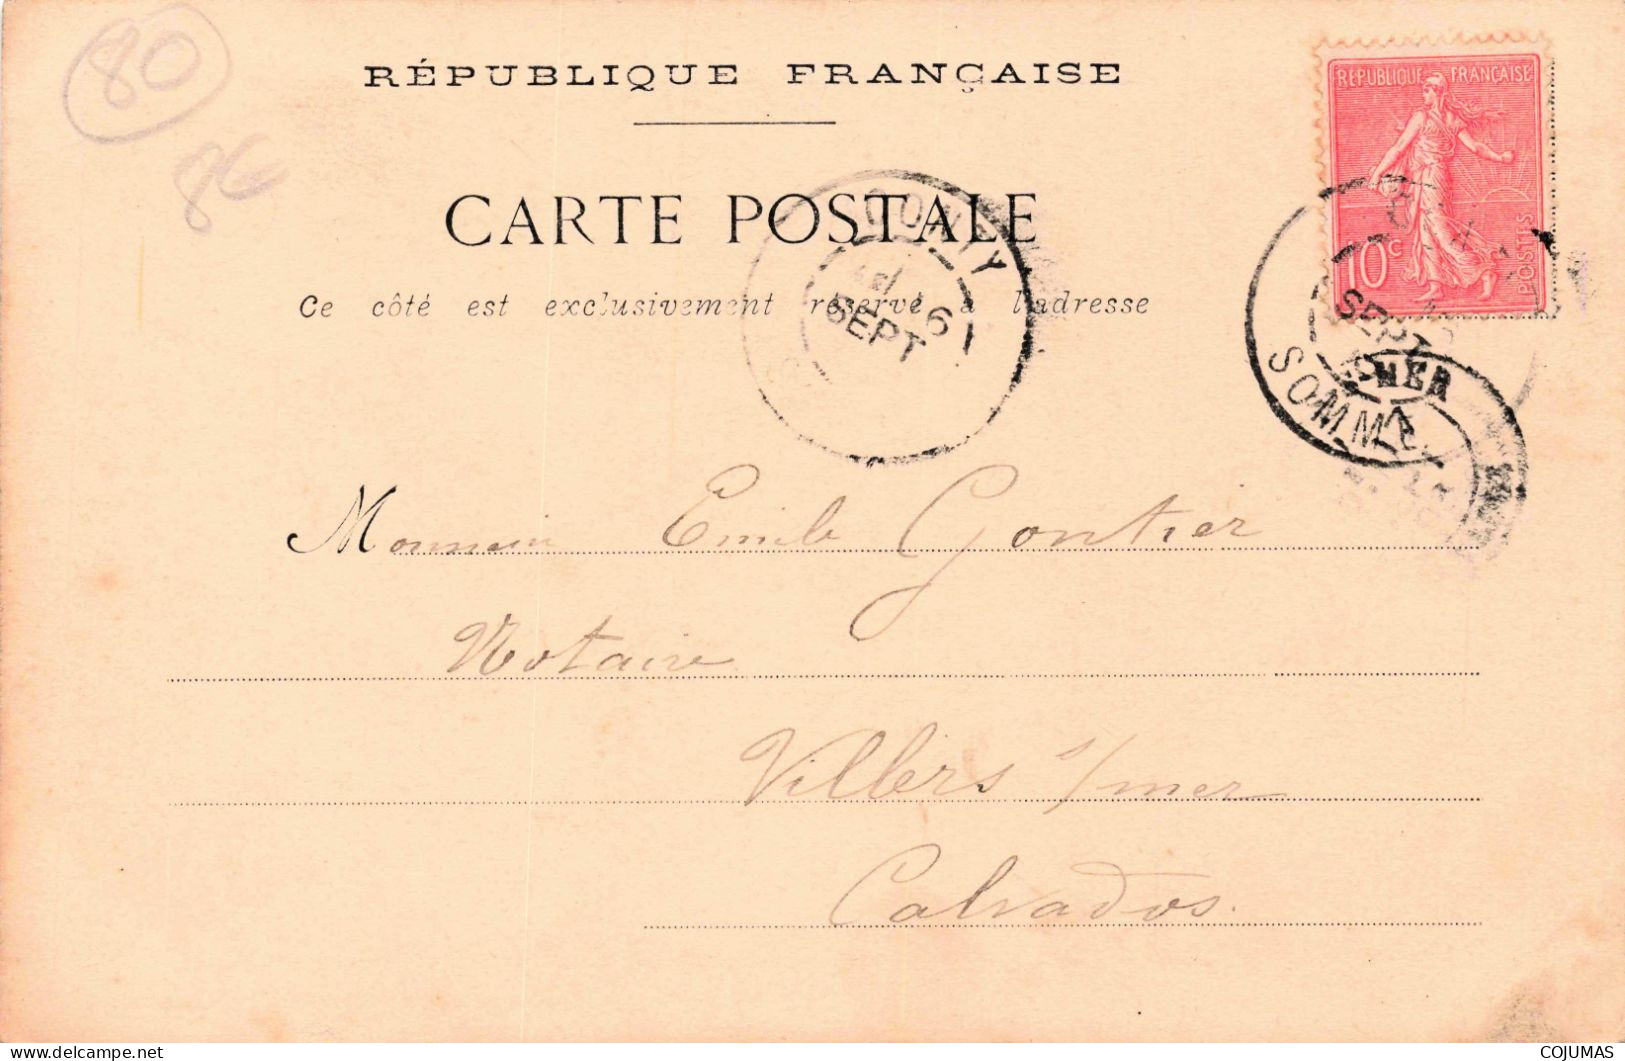 80
86
RÉPUBLIQUE FRANÇAISE
CARTE POSTALE
Ce côté est exclusivement réservé à l'adresse
REPUBLIQUE FRANÇAISE
10c
POSTES
SEPT
6
SEPT
SOMME
MER
Emile Gontier
Notaire
Villers s/mer
Calvados.
COJUMAS